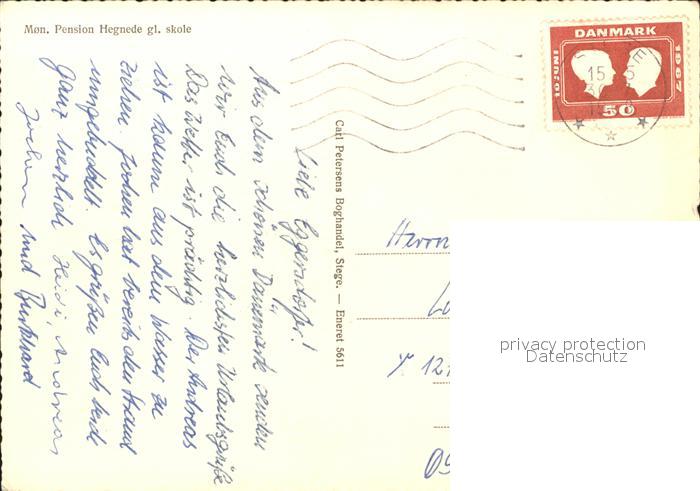 Møn. Pension Hegnede gl. skole
DANMARK
10 JUNI
1967
50
15
Carl Petersens Boghandel, Stege. — Eneret 5611
Liebe Eggersdorfer!
Aus dem schönen Dänemark senden
wir Euch die herzlichsten Urlaubsgrüße
Das Wetter ist prächtig. Der Andreas
ist kaum aus dem Wasser zu
ziehen. Jochen hat bereits den Strand
umgebuddelt. Es grüßen Euch beide
ganz herzlich Heidi, Andreas
Jochen und Burkhard
Herrn
privacy protection
Datenschutz